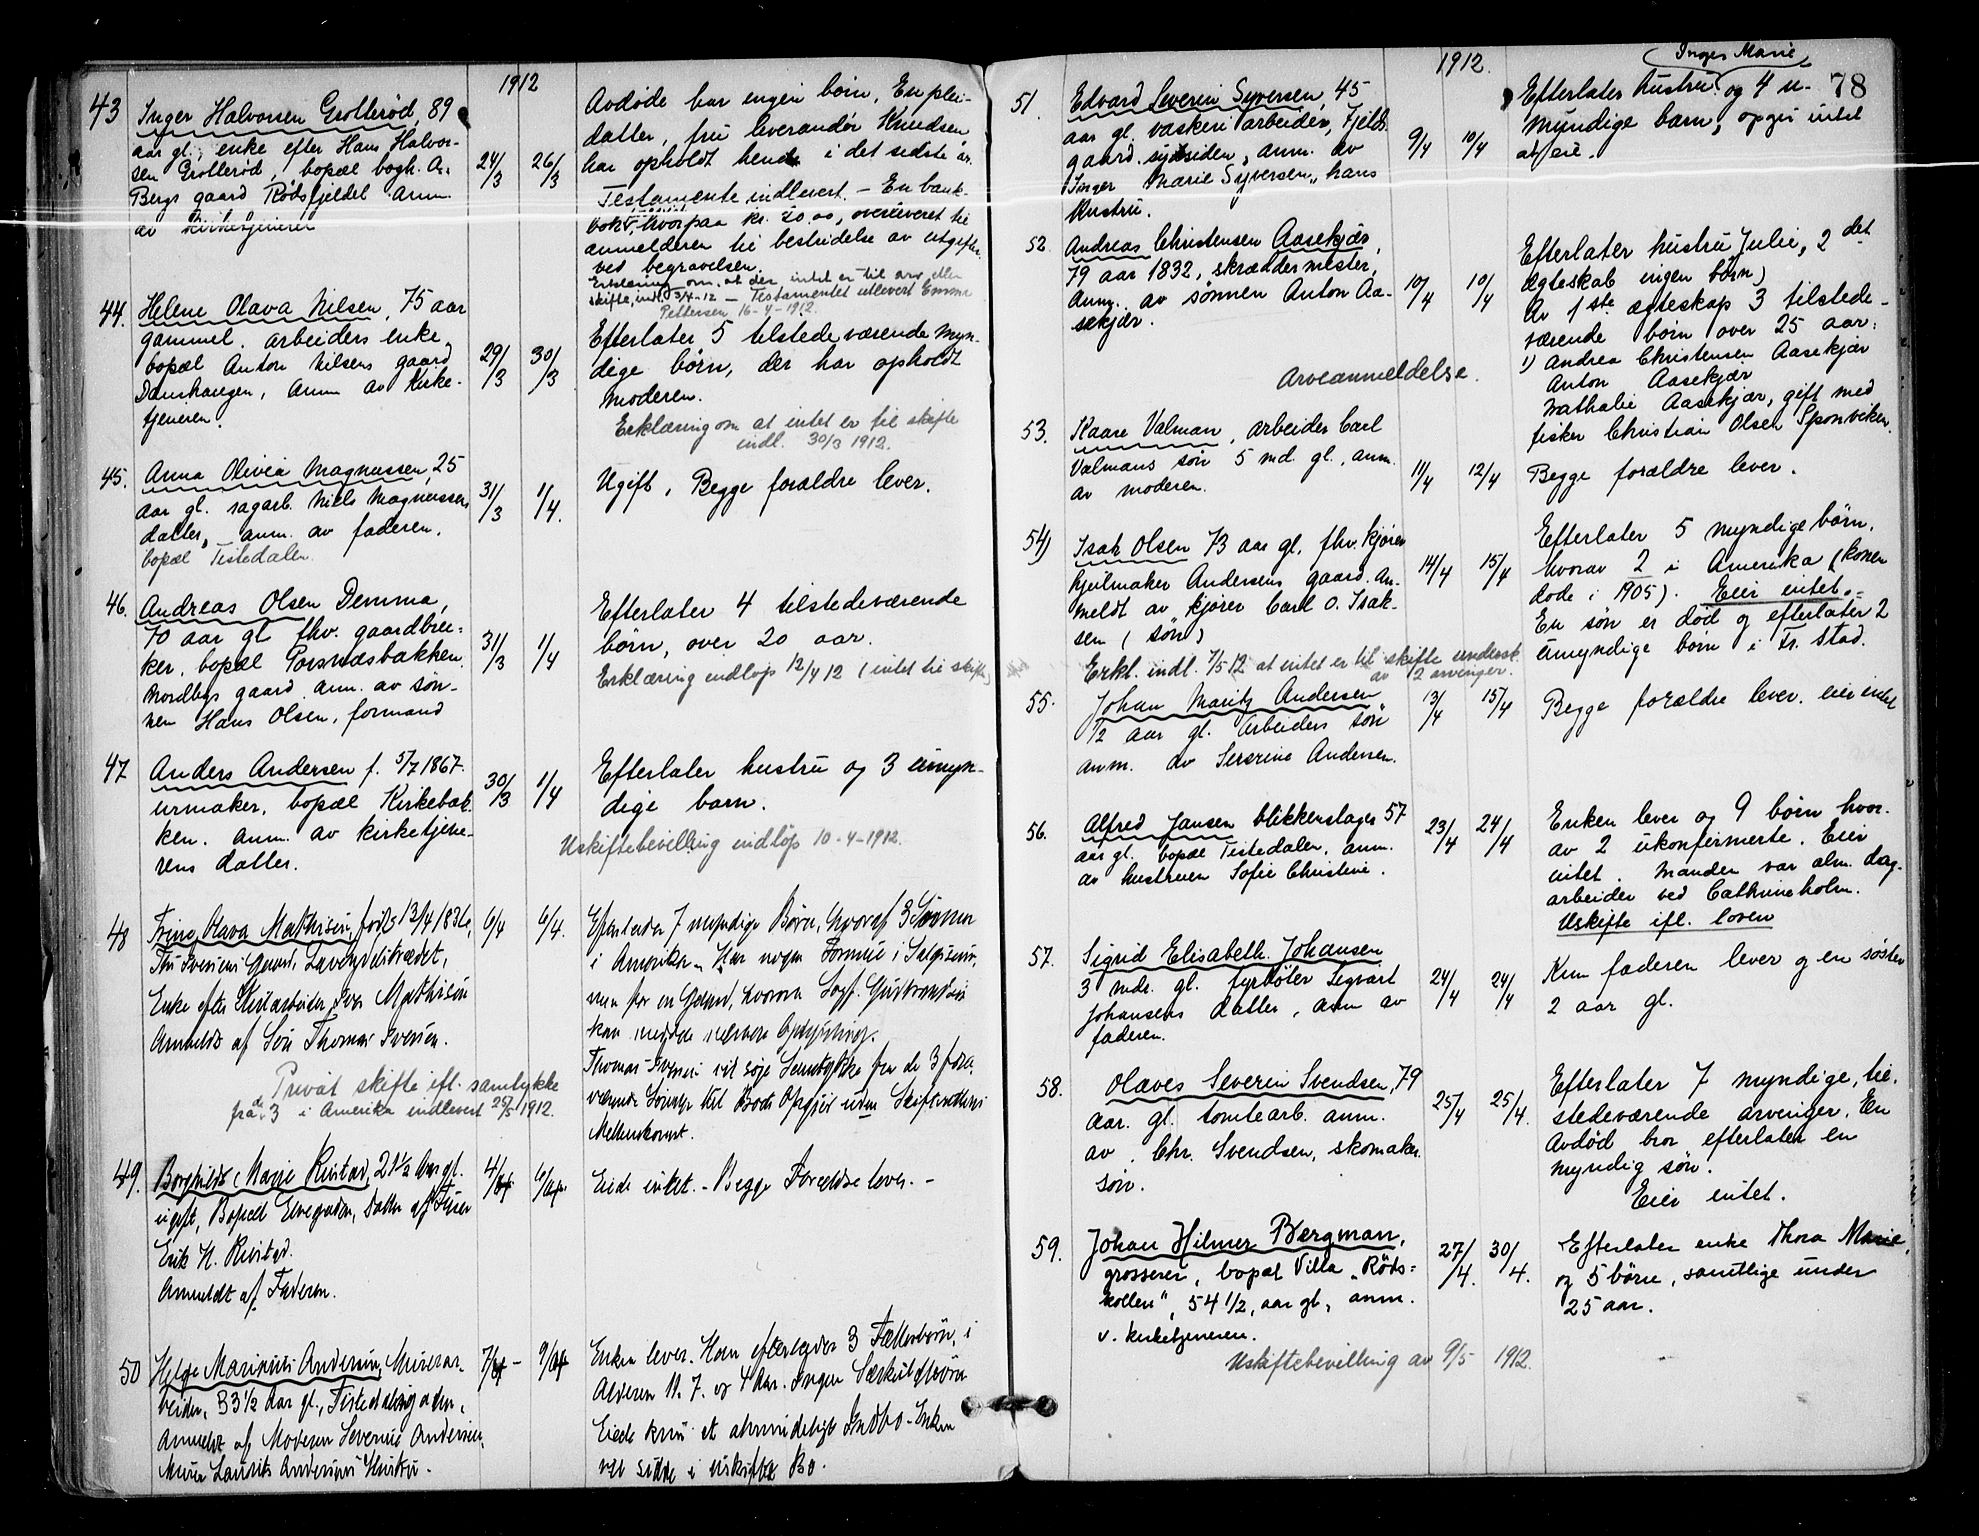 1912
43 Inger Halvorsen Grotterød, 89
aar gl., enke efter Hans Halvor-
sen Grotterød, bopæl bogh. A.
Bergs gaard Rødsfjeldet anm.
av kirketjeneren
24/3 26/3
Avdøde har ingen børn. En pleie-
datter, fru leverandør Knudsen
har opholdt hende i det sidste år.
Testamente indlevert. - En bank-
bok, hvorpaa kr. 20.00, overleveret til
anmelderen til bestridelse av utgifter
ved begravelsen.
Erklæring om, at der intet er til arv eller
skifte, indl. 3/4-12 - Testamentet utlevert Emma
Pettersen 16-4-1912.
44. Helene Olava Nilsen, 75 aar
gammel, arbeiders enke,
bopæl Anton Nilsens gaard
Damhaugen, anm av kirke-
tjeneren.
29/3 30/3
Efterlater 5 tilstedeværende myn-
dige børn, der har opholdt
moderen.
Erklæring om at intet er til skifte
indl. 30/3 1912.
45. Anna Olivia Magnussen, 25
aar gl. sagarb. Niels Magnussens
datter, anm. av faderen.
bopæl Tistedalen.
31/3 1/4.
Ugift, Begge forældre lever.
46. Andreas Olsen Demma,
70 aar gl fhv. gaardbru-
ker, bopæl Porsnæsbakken
Nordbys gaard anm. av søn-
nen Hans Olsen, formand
31/3 1/4
Efterlater 4 tilstedeværende
børn, over 20 aar.
Erklæring indløp 12/4 12 (intet til skifte)
47 Anders Andersen f. 5/7 1867.
urmaker, bopæl Kirkebak-
ken. anm. av kirketjene-
rens datter.
30/3 1/4
Efterlater hustru og 3 umyn-
dige barn.
Uskiftebevilling indløp 10-4-1912.
48 Trine Olava Mathisen, født 13/4 1836,
Iversens Gaard, Lavendelstrædet,
Enke efter Iver Mathisen
Anmeldt af Søn Thomas Iversen.
6/4 6/4.
Efterlader 7 myndige Børn, hvoraf 3 Sønner
i Amerika. Har nogen Formue i
kan meddele nærmere Oplysning.
Thomas Iversen vil søge Samtykke fra de 3 fra-
værende Sønner til Boets Opgjør uden Skifterettens
Mellemkomst.
Privat skifte ifl. samtykke
fra de 3 i Amerika indlevert 25/5 1912.
49. Borghild Marie Rivstad, 21½ Aar gl.
ugift, Bopæl Elvegaden, Datter af
Erik H. Rivstad.
Anmeldt af Faderen.
4/4 6/4.
Eiede intet. - Begge Forældre lever. -
50 Helge Marinius Andersen, Murerar-
beider, 33½ Aar gl., Tistedalsgaden,
Anmeldt af Moderen Severine Andersen,
Murer Laurits Andersens Hustru.
7/4 - 9/4
Enken lever. Han efterlader 3 Fællesbørn, i
Alderen 11. 7. og 4 Aar. Ingen Særkuldsbørn
Eiede kun et almindeligt Indbo - Enken
vil sidde i uskiftet Bo.
1912.
78
51. Edvard Severin Syversen, 45
aar gl. vaskeri arbeider, Fjeld-
gaard. sydsiden, anm. av
Inger Marie Syversen, hans
hustru.
9/4 10/4
Inger Marie
Efterlater hustru og 4 u-
myndige barn, opgir intet
at eie.
52. Andreas Christensen Aasekjær,
79 aar 1832, skræddermester,
anm. av sønnen Anton Aa-
sekjær.
10/4 10/4
Efterlater hustru Julie, 2det
ægteskab ingen børn)
Av 1ste ægteskap 3 tilstede-
værende børn over 25 aar:
1) Andrea Christensen Aasekjær
Anton Aasekjær
Nathalie Aasekjær, gift med
fisker Christian Olsen Sponviken.
Arveanmeldelse.
53. Kaare Valman, arbeider Carl
Valmans søn 5 md. gl., anm.
av moderen.
11/4 12/4
Begge forældre lever.
54) Isak Olsen 73 aar gl. fhv. kjører
hjulmaker Andersens gaard. An-
meldt av kjører Carl O. Isak-
sen (søn)
14/4 15/4
Efterlater 5 myndige børn,
hvorav 2 i Amerika (konen
døde i 1905). Eier intet.
En søn er død og efterlater 2
umyndige børn i Fr. stad.
Erkl. indl. 7/5 12 at intet er til skifte undersk.
av 2 arvinger.
55. Johan Maritz Andersen
1/2 aar gl. arbeiders søn
anm. av Severine Andersen.
13/4 15/4
Begge forældre lever. eier intet
56. Alfred Jansen blikkenslager 57
aar gl. bopæl Tistedalen, anm.
av hustruen Sofie Christine.
23/4 24/4
Enken lever og 9 børn hvor-
av 2 ukonfirmerte. Eier
intet. Manden var alm. dag-
arbeider ved Cathrineholm.
Uskifte ifl. loven
57. Sigrid Elisabeth Johansen
3 mdr. gl. fyrbøter Sigvart
Johansens datter, anm av
faderen.
24/4 24/4
Kun faderen lever og en søster
2 aar gl.
58. Olaves Severin Svendsen, 79
aar. gl. tomtearb. anm.
av Chr. Svendsen, skomaker
søn.
25/4 25/4.
Efterlater 7 myndige, til-
stedeværende arvinger. En
avdød bror efterlater en
myndig søn.
Eier intet.
59. Johan Hilmer Bergman,
grosserer, bopæl Villa "Røds-
kollen", 54 1/2, aar gl, anm.
v. kirketjeneren.
27/4. 30/4.
Efterlater enke Thora Marie,
og 5 børn, samtlige under
25 aar.
Uskiftebevilling av 9/5 1912.